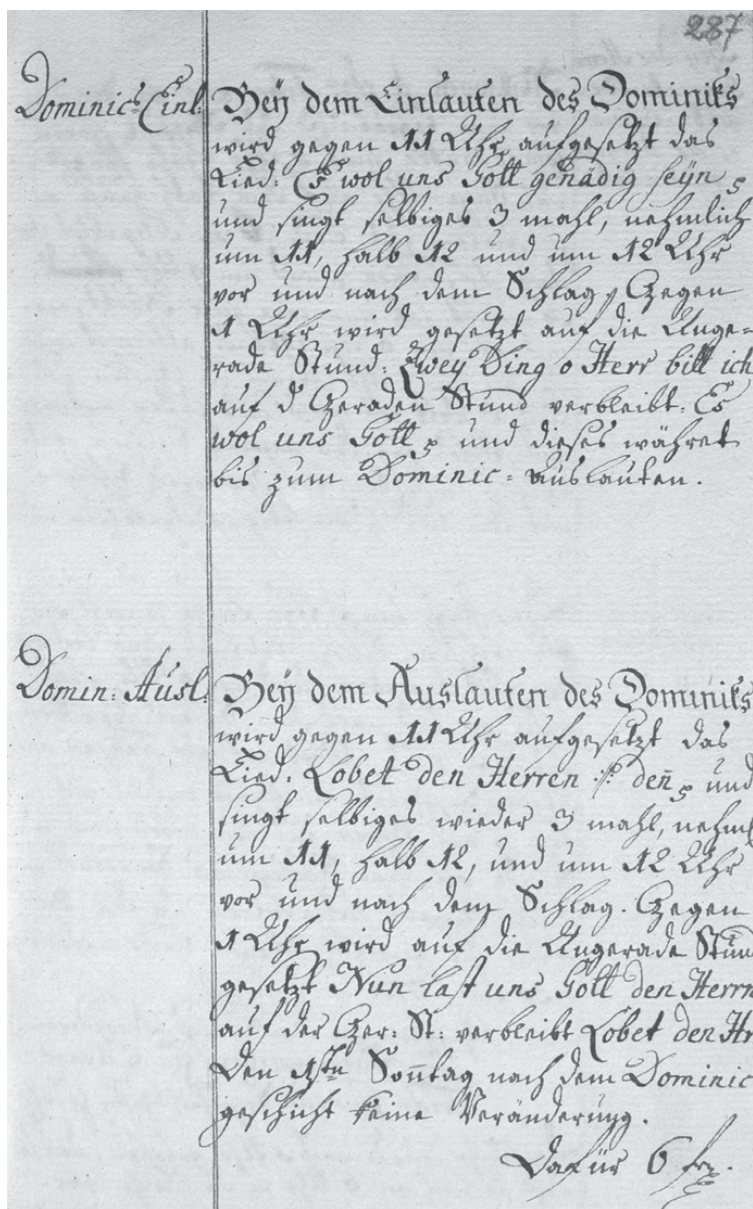 287
Dominics Einl:
Bey dem Einlauten des Dominiks
wird gegen 11 Uhr aufgesetzt das
Lied: Es wol uns Gott genädig seÿn
und singt selbiges 3 mahl, nehmlich
um 11, halb 12 und um 12 Uhr
vor und nach dem Schlag. Gegen
1 Uhr wird gesetzt auf die Unge=
rade Stund: Zweÿ Ding o Herr bitt ich
auf d Geraden Stund verbleibt: Es
wol uns Gott und dieses währet
bis zum Dominic=auslauten.
Domin: Ausl:
Beÿ dem Auslauten des Dominiks
wird gegen 11 Uhr aufgesetzt das
Lied: Lobet den Herren :/: deñ und
singt selbiges wieder 3 mahl, nehml
um 11, halb 12, und um 12 Uhr
vor und nach dem Schlag. Gegen
1 Uhr wird auf die Ungerade Stund
gesetzt Nun last uns Gott den Herrn
auf der Ger: St: verbleibt Lobet den Hr
Den 1stn Soñtag nach dem Dominic
geschicht keine Veränderung.
Dafür 6